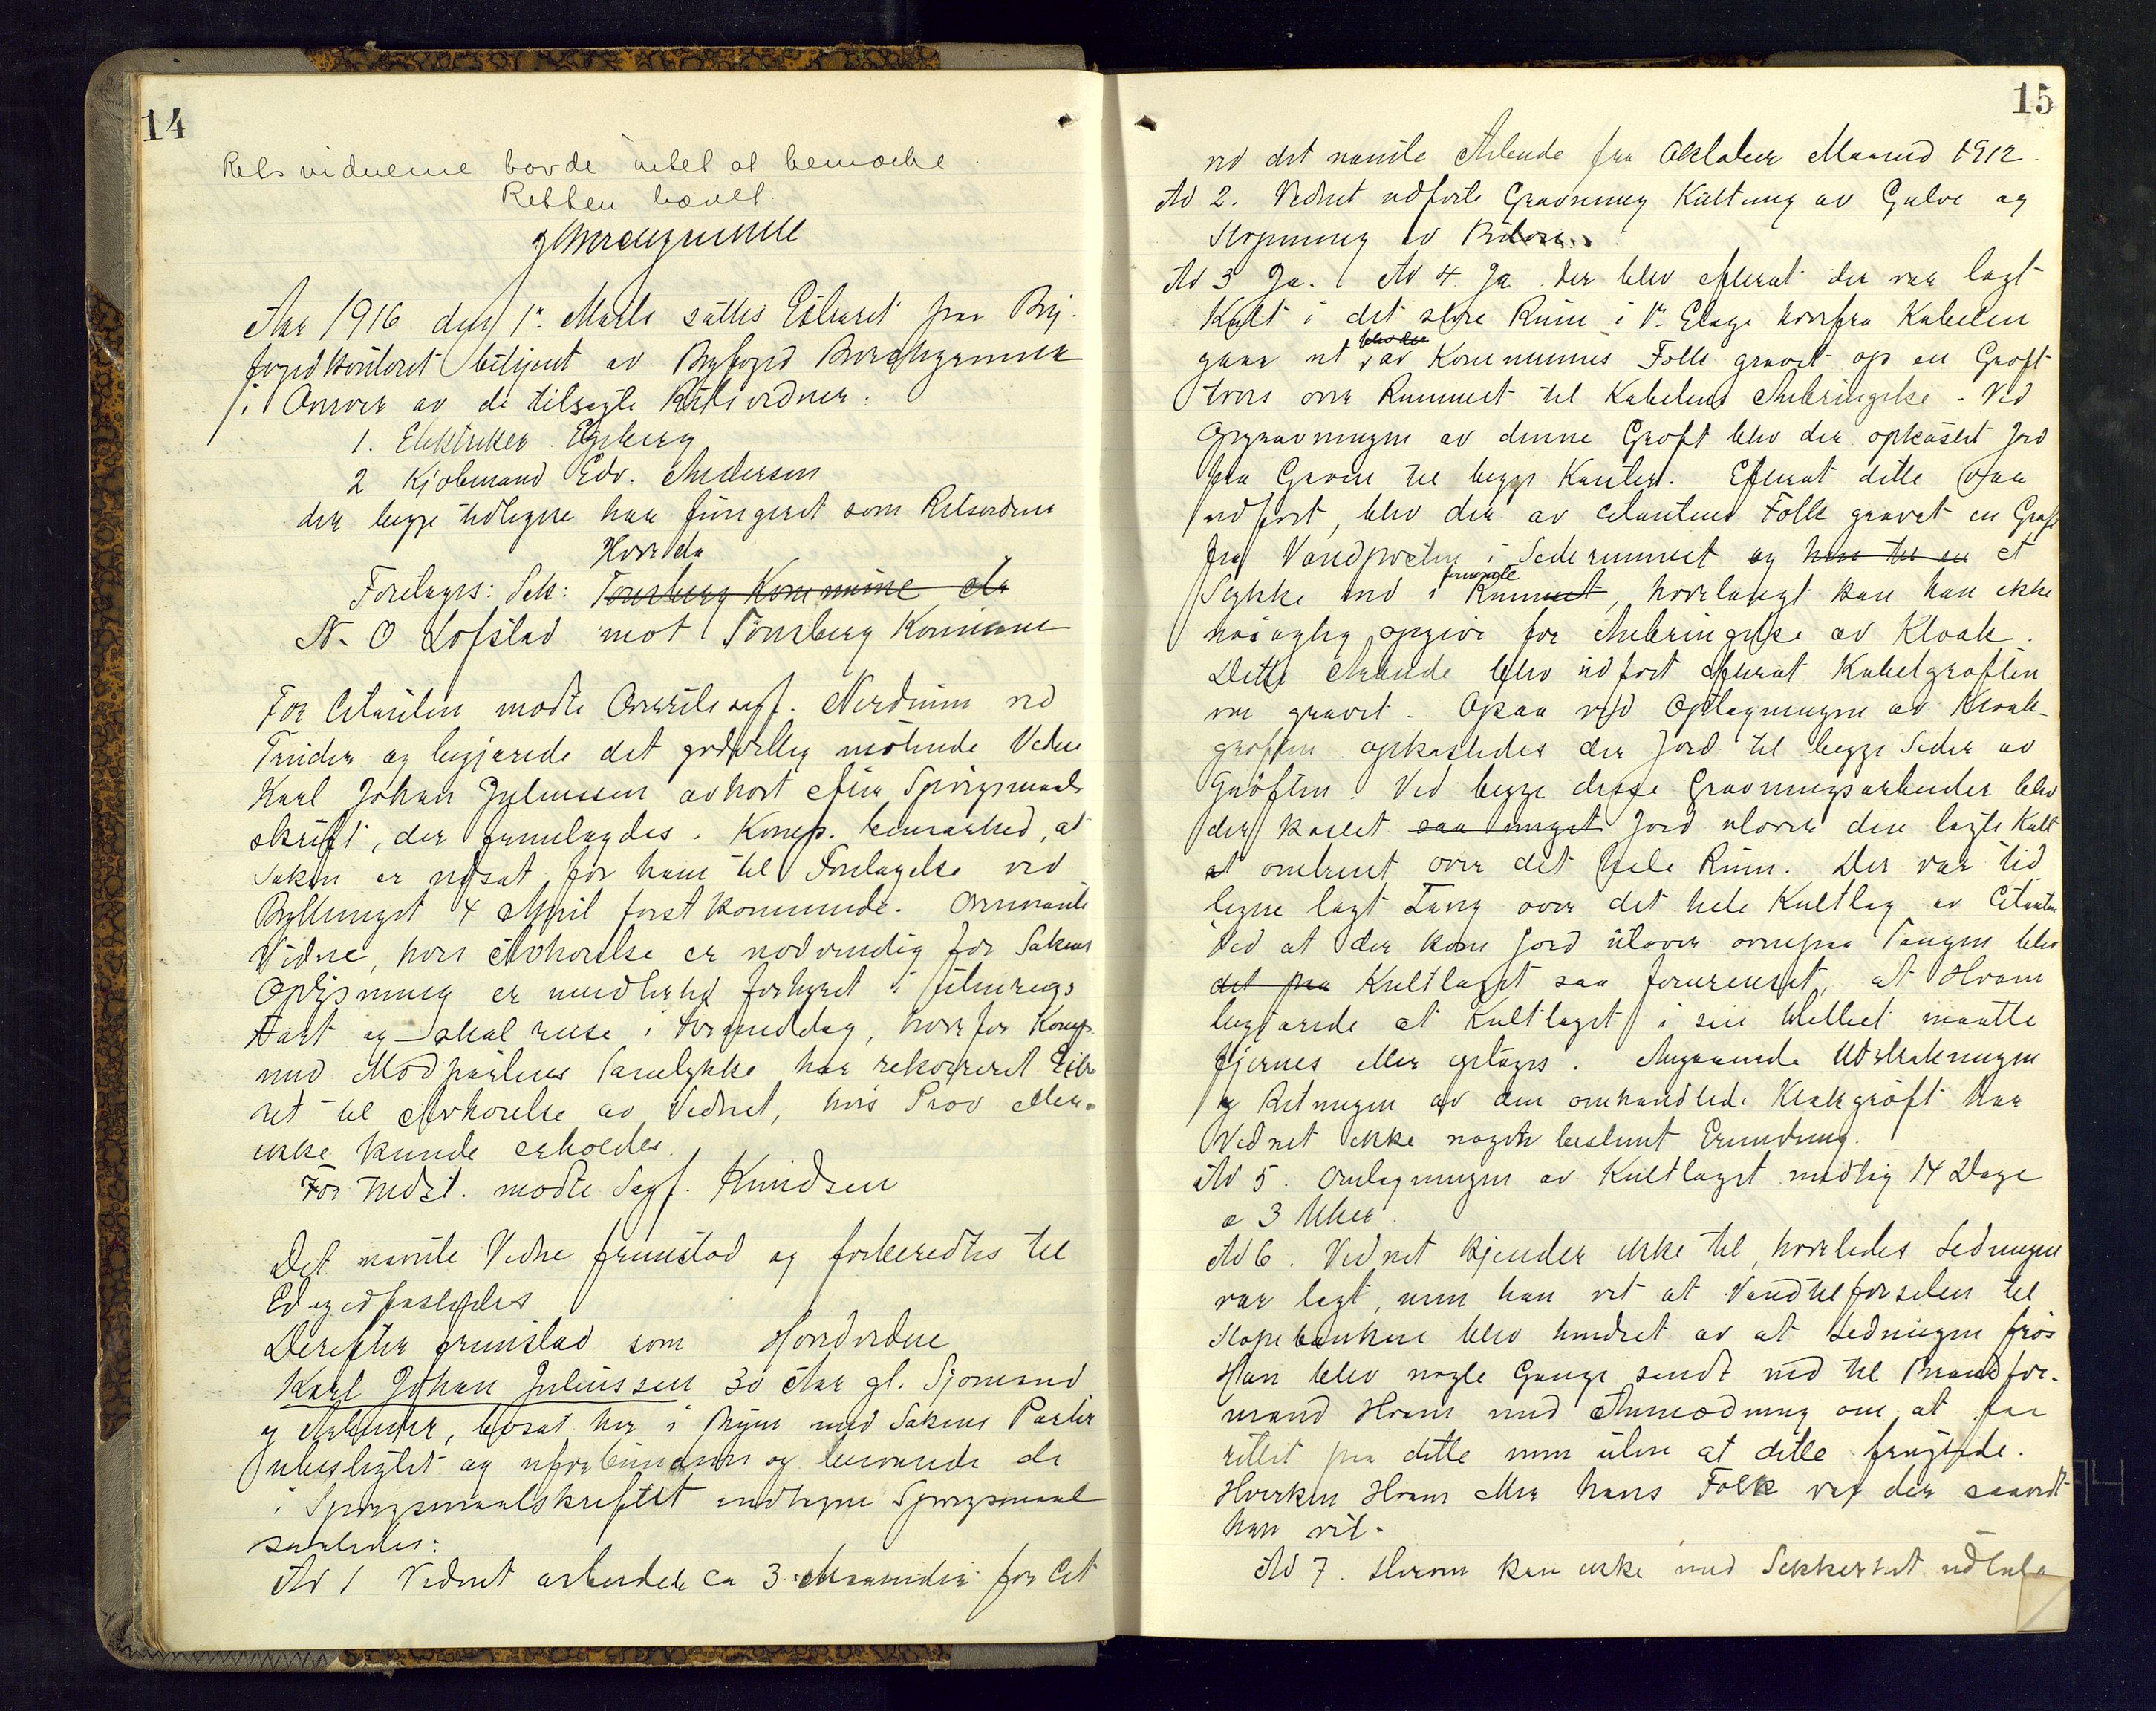 14
Retsvidnerne havde intet at bemærke.
Retten hævet.
Aar 1916 den 1ste Marts sattes Extraret paa By-
fogedkontoret betjent av Byfoged Borchgrevink
i Overvær av de tilsagte Retsvidner.
1. Elektriker Egeberg
2 Kjøbmand Edv. Andersen
der begge tidligere har fungeret som Retsvidner
Hvorda
Foretages: Sak: Tønsberg Kommune eta
N. O Lofstad mot Tønsberg Kommune
For Citanten mødte Overretssagf. Nerdrum ved
Trudin og begjærede det godvillig møtende Vidne
Karl Johan Juliussen avhørt efter Spørgsmaals
skrift, der fremlagdes. Komp. bemærked, at
Saken er utsat for ham til Foretagelse ved
Bythinget 4 April først kommende. Ovennævnte
Vidne, hvis Avhørelse er nødvendig for Sakens
Oplysning er imidlertid forhyret i utenrigs
Fart og skal reise i Formiddag, hvorfor Komp.
med Modpartens Samtykke har rekvireret Extra
ret til Avhørelse av Vidnet, hvis Prov ellers
ikke kunde erholdes.
For Indst. mødte Sagf. Knudsen
Det nævnte Vidne fremstod og forberedtes til
Ed og edfæstedes
Derefter fremstod som Hovedvidne
Karl Johan Juliussen 30 Aar gl. Sjømand
og Arbeider, bosat her i Byen med Sakens Parter
ubeslegtet og uforbunden og besvarede de
i Spørgsmaalskriftet indtagne Spørgsmaal
saaledes:
Ad 1 Vidnet arbeidede ca 3 Maaneder for Cit
15
ved det nævnte Arbeide fra Oktober Maaned 1912.
Ad 2. Vidnet utførte Gravning Kultning av Gulve og
Støpning av
Ad 3 Ja. Ad 4 Ja der blev efterat der var lagt
Kult i det store Rum i 1ste Etage hvorfra Kabelen
blev der
gaar ut av Kommunens Folk gravet op en Grøft
tvers over Rummet til Kabelens Anbringelse. Ved
Opgravningen av denne Grøft blev der opkastet Jord
fra Graven til begge Kanter. Efterat dette var
utført, blev der av Citantens Folk gravet en Grøft
fra Vandposten i Siderummet og hen til en et
førnævnte
Stykke ind i Rummet, hvorlangt kan han ikke
nøiagtig opgive for Anbringelse av Kloak.
Dette Arbeide blev utført efterat Kabelgrøften
var gravet. Ogsaa ved Optagningen av Kloak-
grøften opkastedes der Jord til begge Sider av
Grøften. Ved begge disse Gravningsarbeider blev
der kastet saa meget Jord utover den lagte Kult
at omtrent over det hele Rum. Der var tid
ligere lagt Tang over det hele Kultlag av Citanten
Ved at der kom Jord utover ovenpaa Tangen blev
det paa Kultlaget saa forurenset, at Hvam
begjærede at Kultlaget i sin Helhet maatte
fjernes eller optages. Angaaende Utstrækningen
og Retningen av den omhandlede Kloakgrøft har
Vidnet ikke nogen bestemt Erindring.
Ad 5. Omlægningen av Kultlaget medtog 14 Dage
a 3 Uker.
Ad 6. Vidnet kjender ikke til, hvorledes Ledningen
var lagt, men han vet at Vandtilførselen til
Støpebænken blev hindret av at Ledningen frøs
Han blev nogle Gange sendt ned til Brandfor-
mand Hvam med Anmodning om at faa
rettet paa dette men uten at dette frugtede.
Hverken Hvam eller hans Folk var der saavidt
han vet.
Ad 7. Herom kan ikke med Sikkerhet udtale